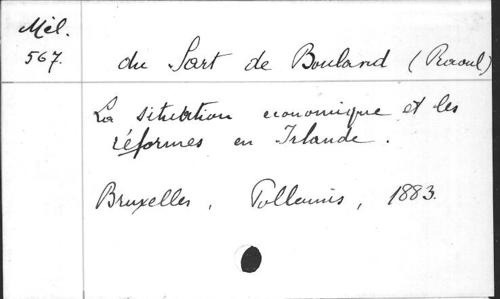 Mél.
567.
du Sart de Bouland (Raoul)
La situation économique et les
réformes en Irlande.
Bruxelles, Polleunis, 1883.